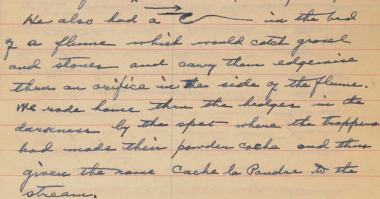 He also had a in the bed
of a flume which would catch gravel
and stones and carry them edgewise
thru an orifice in the side of the flume.
We rode home thru the hedges in the
darkness by the spot where the trappers
had made their powder cache and thus
given the name Cache la Poudre to the
stream.